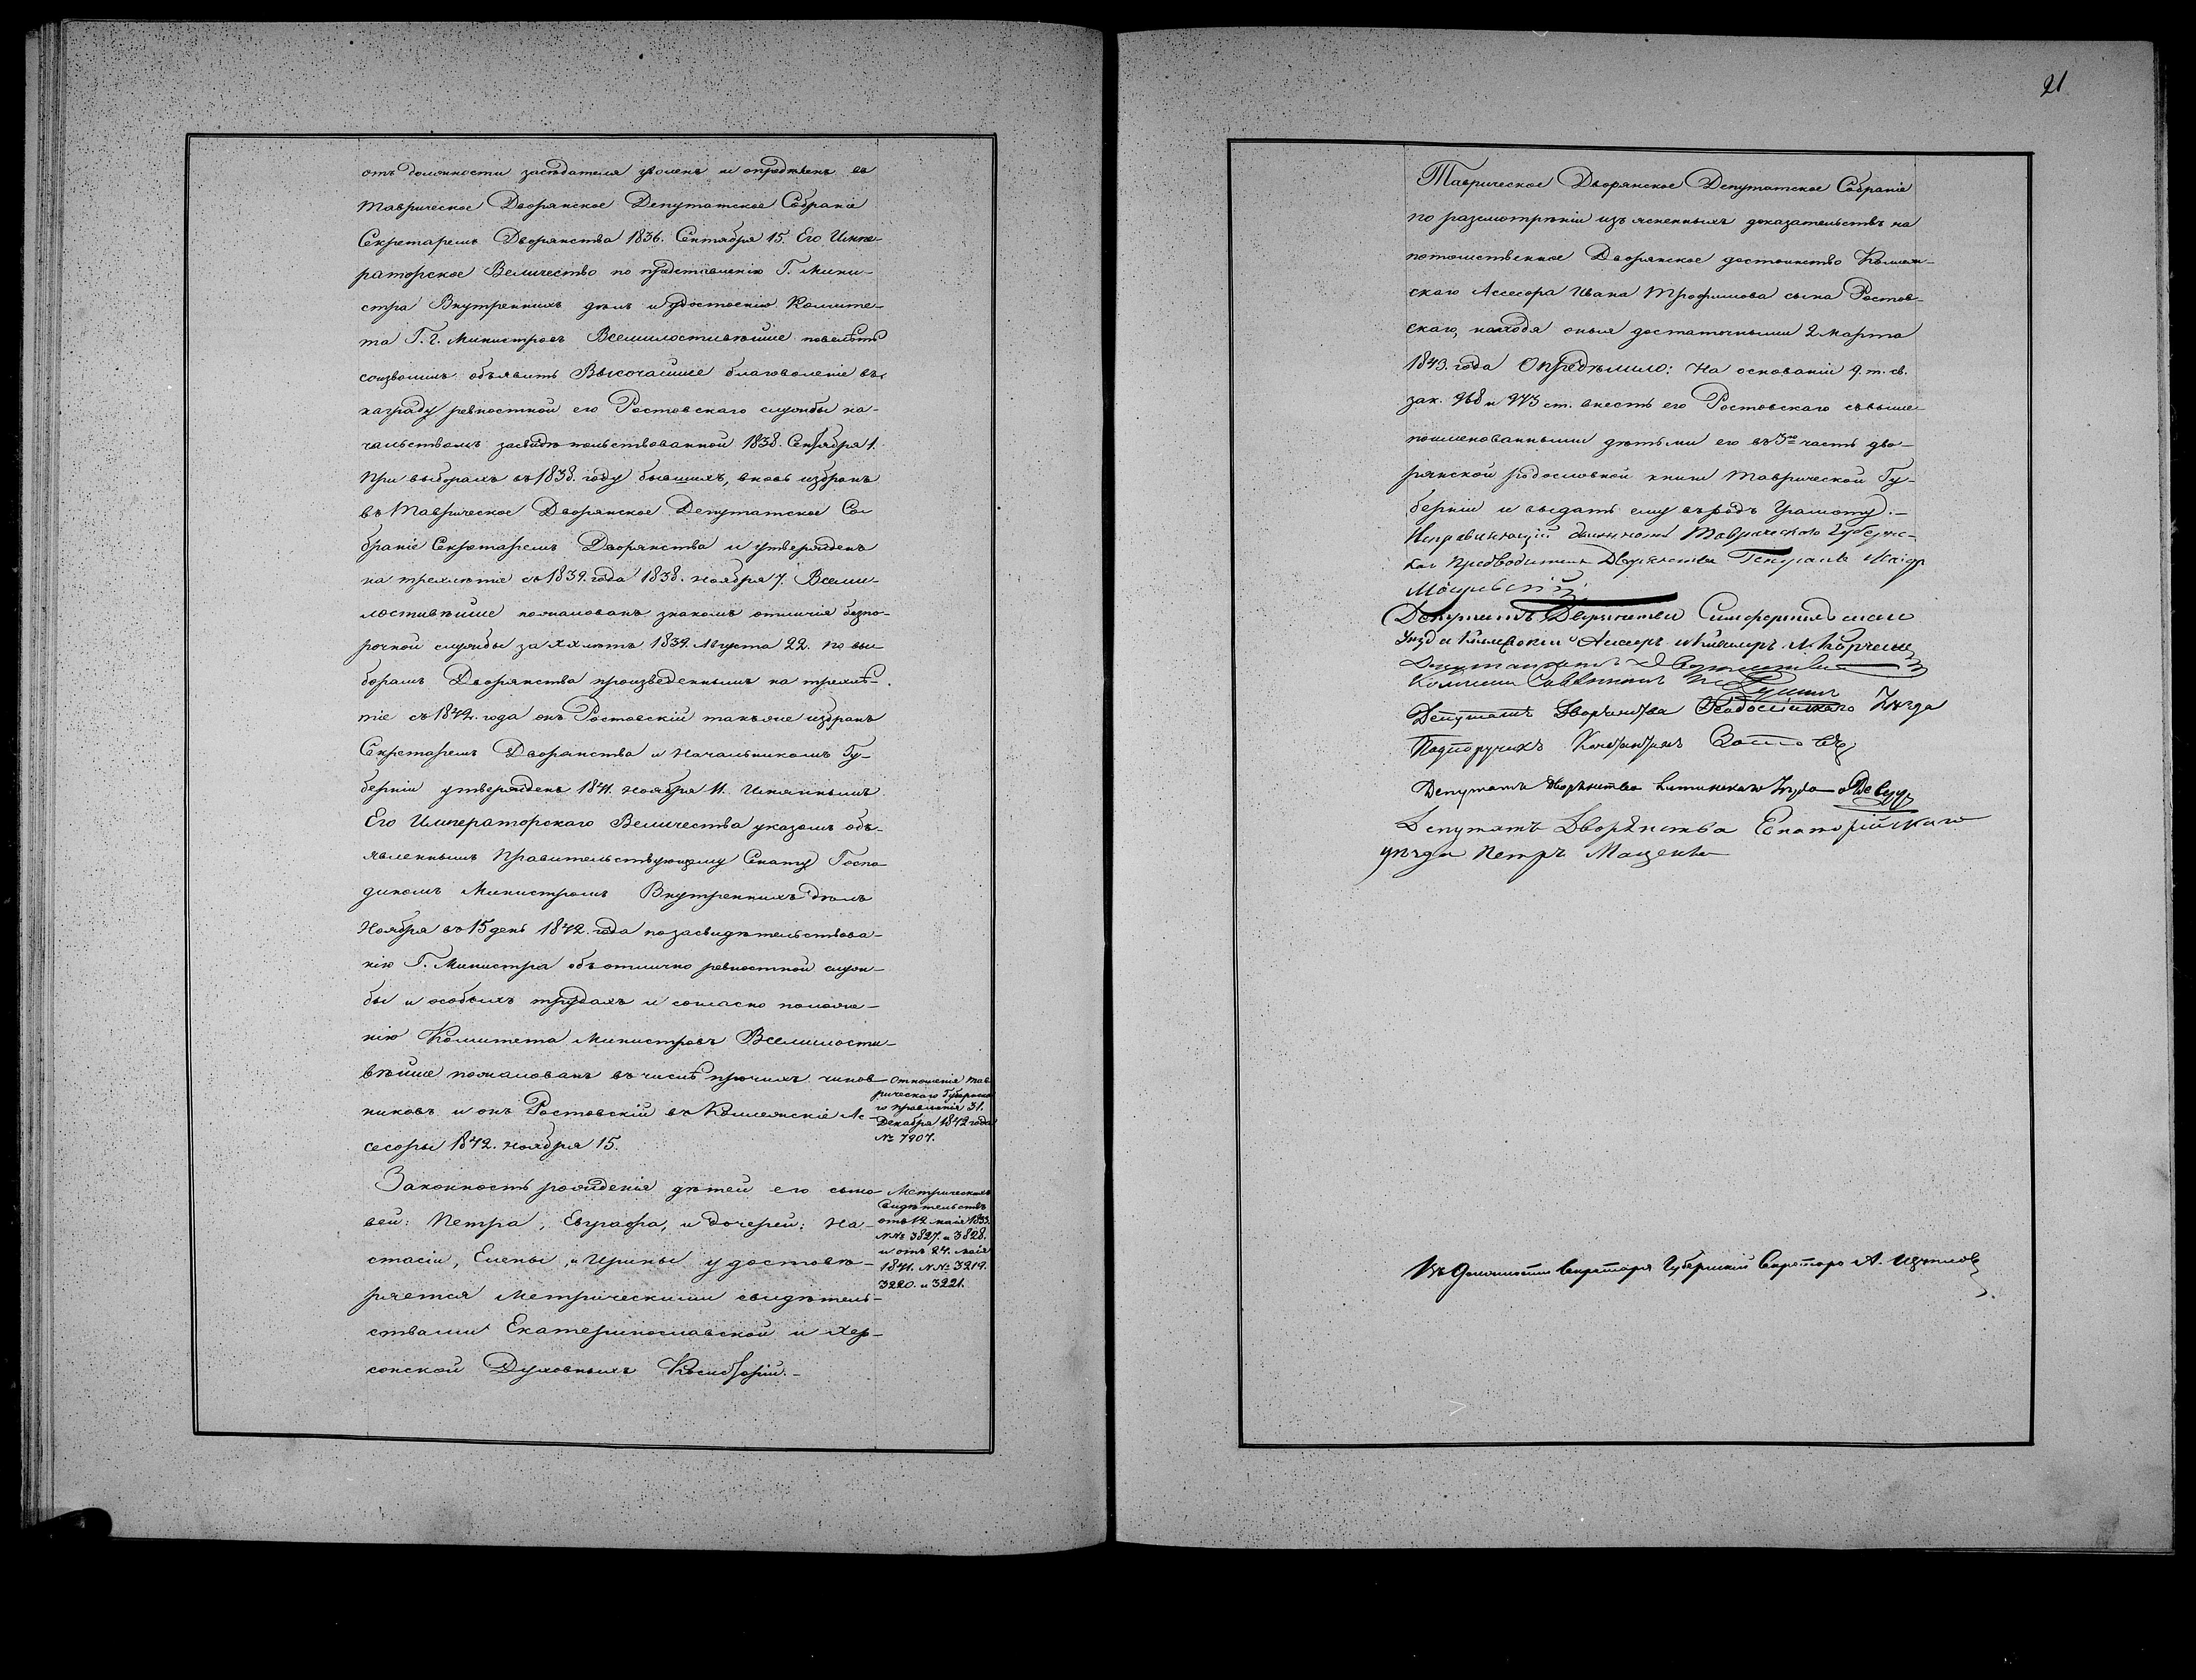 отъ должности засѣдателя уволенъ и опредѣленъ въ
Таврическое Дворянское Депутатское Собраніе
Секретаремъ Дворянства 1836. Сентября 15. Его Импе-
раторское Величество по представленію Г. Мини-
стра Внутреннихъ дѣлъ и удостоенію Комите-
та Г. г. Министровъ Всемилостивѣйше повелѣть
соизволилъ объявить Высочайшее благоволеніе въ
награду ревностной его Ростовскаго службы на-
чальствомъ засвидѣтельствованной 1838. Сентября 1.
При выборахъ въ 1838. году бывшихъ, вновь избранъ
въ Таврическое Дворянское Депутатское Со-
браніе Секретаремъ Дворянства и утвержденъ
на трехлѣтіе съ 1839. года 1838. Ноября 7. Всеми-
лостивѣйше пожалованъ знакомъ отличія безпо-
рочной службы за XX лѣтъ 1839. Августа 22. По вы-
борамъ Дворянства произведеннымъ на трехлѣ-
тіе съ 1842. года онъ Ростовскій также избранъ
Секретаремъ Дворянства и Начальникомъ Гу-
берніи утвержденъ 1841. Ноября 11. Имяннымъ
Его Императорскаго Величества указомъ объ-
явленнымъ Правительствующему Сенату Госпо-
диномъ Министромъ Внутреннихъ дѣлъ
Ноября въ 15 день 1842. года по засвидѣтельствова-
нію Г. Министра объ отлично ревностной служ-
бы и особыхъ трудахъ и согласно положе-
нію Комитета Министровъ Всемилости-
вѣйше пожалованъ въ числѣ прочихъ чинов-
никовъ и онъ Ростовскій въ Коллежскіе Ас-
сесоры 1842. Ноября 15.
Отношенія Тав-
рическаго Губернска-
го правленія 31.
Декабря 1842 года
№ 7907.
Законность рожденія дѣтей его сыно-
вей: Петра, Евграфа, и дочерей: На-
стасіи, Елены, и Ирины удостовѣ-
ряется Метрическими свидѣтель-
ствами Екатеринославской и Хер-
сонской Духовныхъ Консисторій.-
Метрическихъ
Свидѣтельствъ
отъ 12 маія 1833.
№№ 3827. и 3828.
и отъ 24. маія
1841. №№ 3219.
3220. и 3221.
21
Таврическое Дворянское Депутатское Собраніе
по разсмотрѣніи изъясненныхъ доказательствъ на
потомственное Дворянское достоинство Коллеж-
скаго Ассесора Ивана Трофимова сына Ростов-
скаго, находя оныя достаточными 2 Марта
1843. года Опредѣлило: На основаніи 9. т. св.
зак. 968 и 973 ст. внесть его Ростовскаго съ выше-
поименованными дѣтьми его въ 3ю часть дво-
рянской родословной книги Таврической Гу-
берніи и выдать ему въ родъ Грамоту.-
Исправляющій должность Таврическаго Губернс-
каго Предводителя Дворянства Генералъ Маіоръ
Депутатъ Дворянства Симферопольскаго
Уѣзда Коллежскій Ассесоръ и Кавалеръ
Депутатъ Дворянства
Депутатъ Дворянства Ѳеодосійскаго Уѣзда
Подпоручикъ
Депутатъ Дворянства Ялтинскаго Уѣзда
Депутатъ Дворянства Евпаторійскаго
уѣзда Петръ Маценко
Въ должности Секретаря Губернскій Секретарь А.